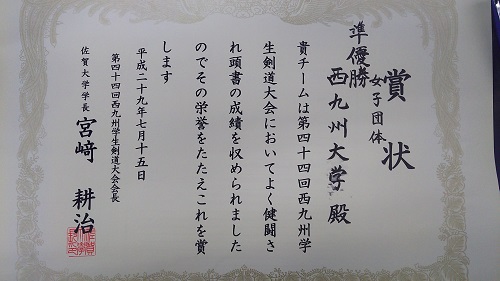 賞状
女子団体
準優勝
西九州大学 殿
貴チームは第四十四回西九州学
生剣道大会においてよく健闘さ
れ頭書の成績を収められました
のでその栄誉をたたえこれを賞
します
平成二十九年七月十五日
第四十四回西九州学生剣道大会会長
佐賀大学学長 宮﨑 耕治